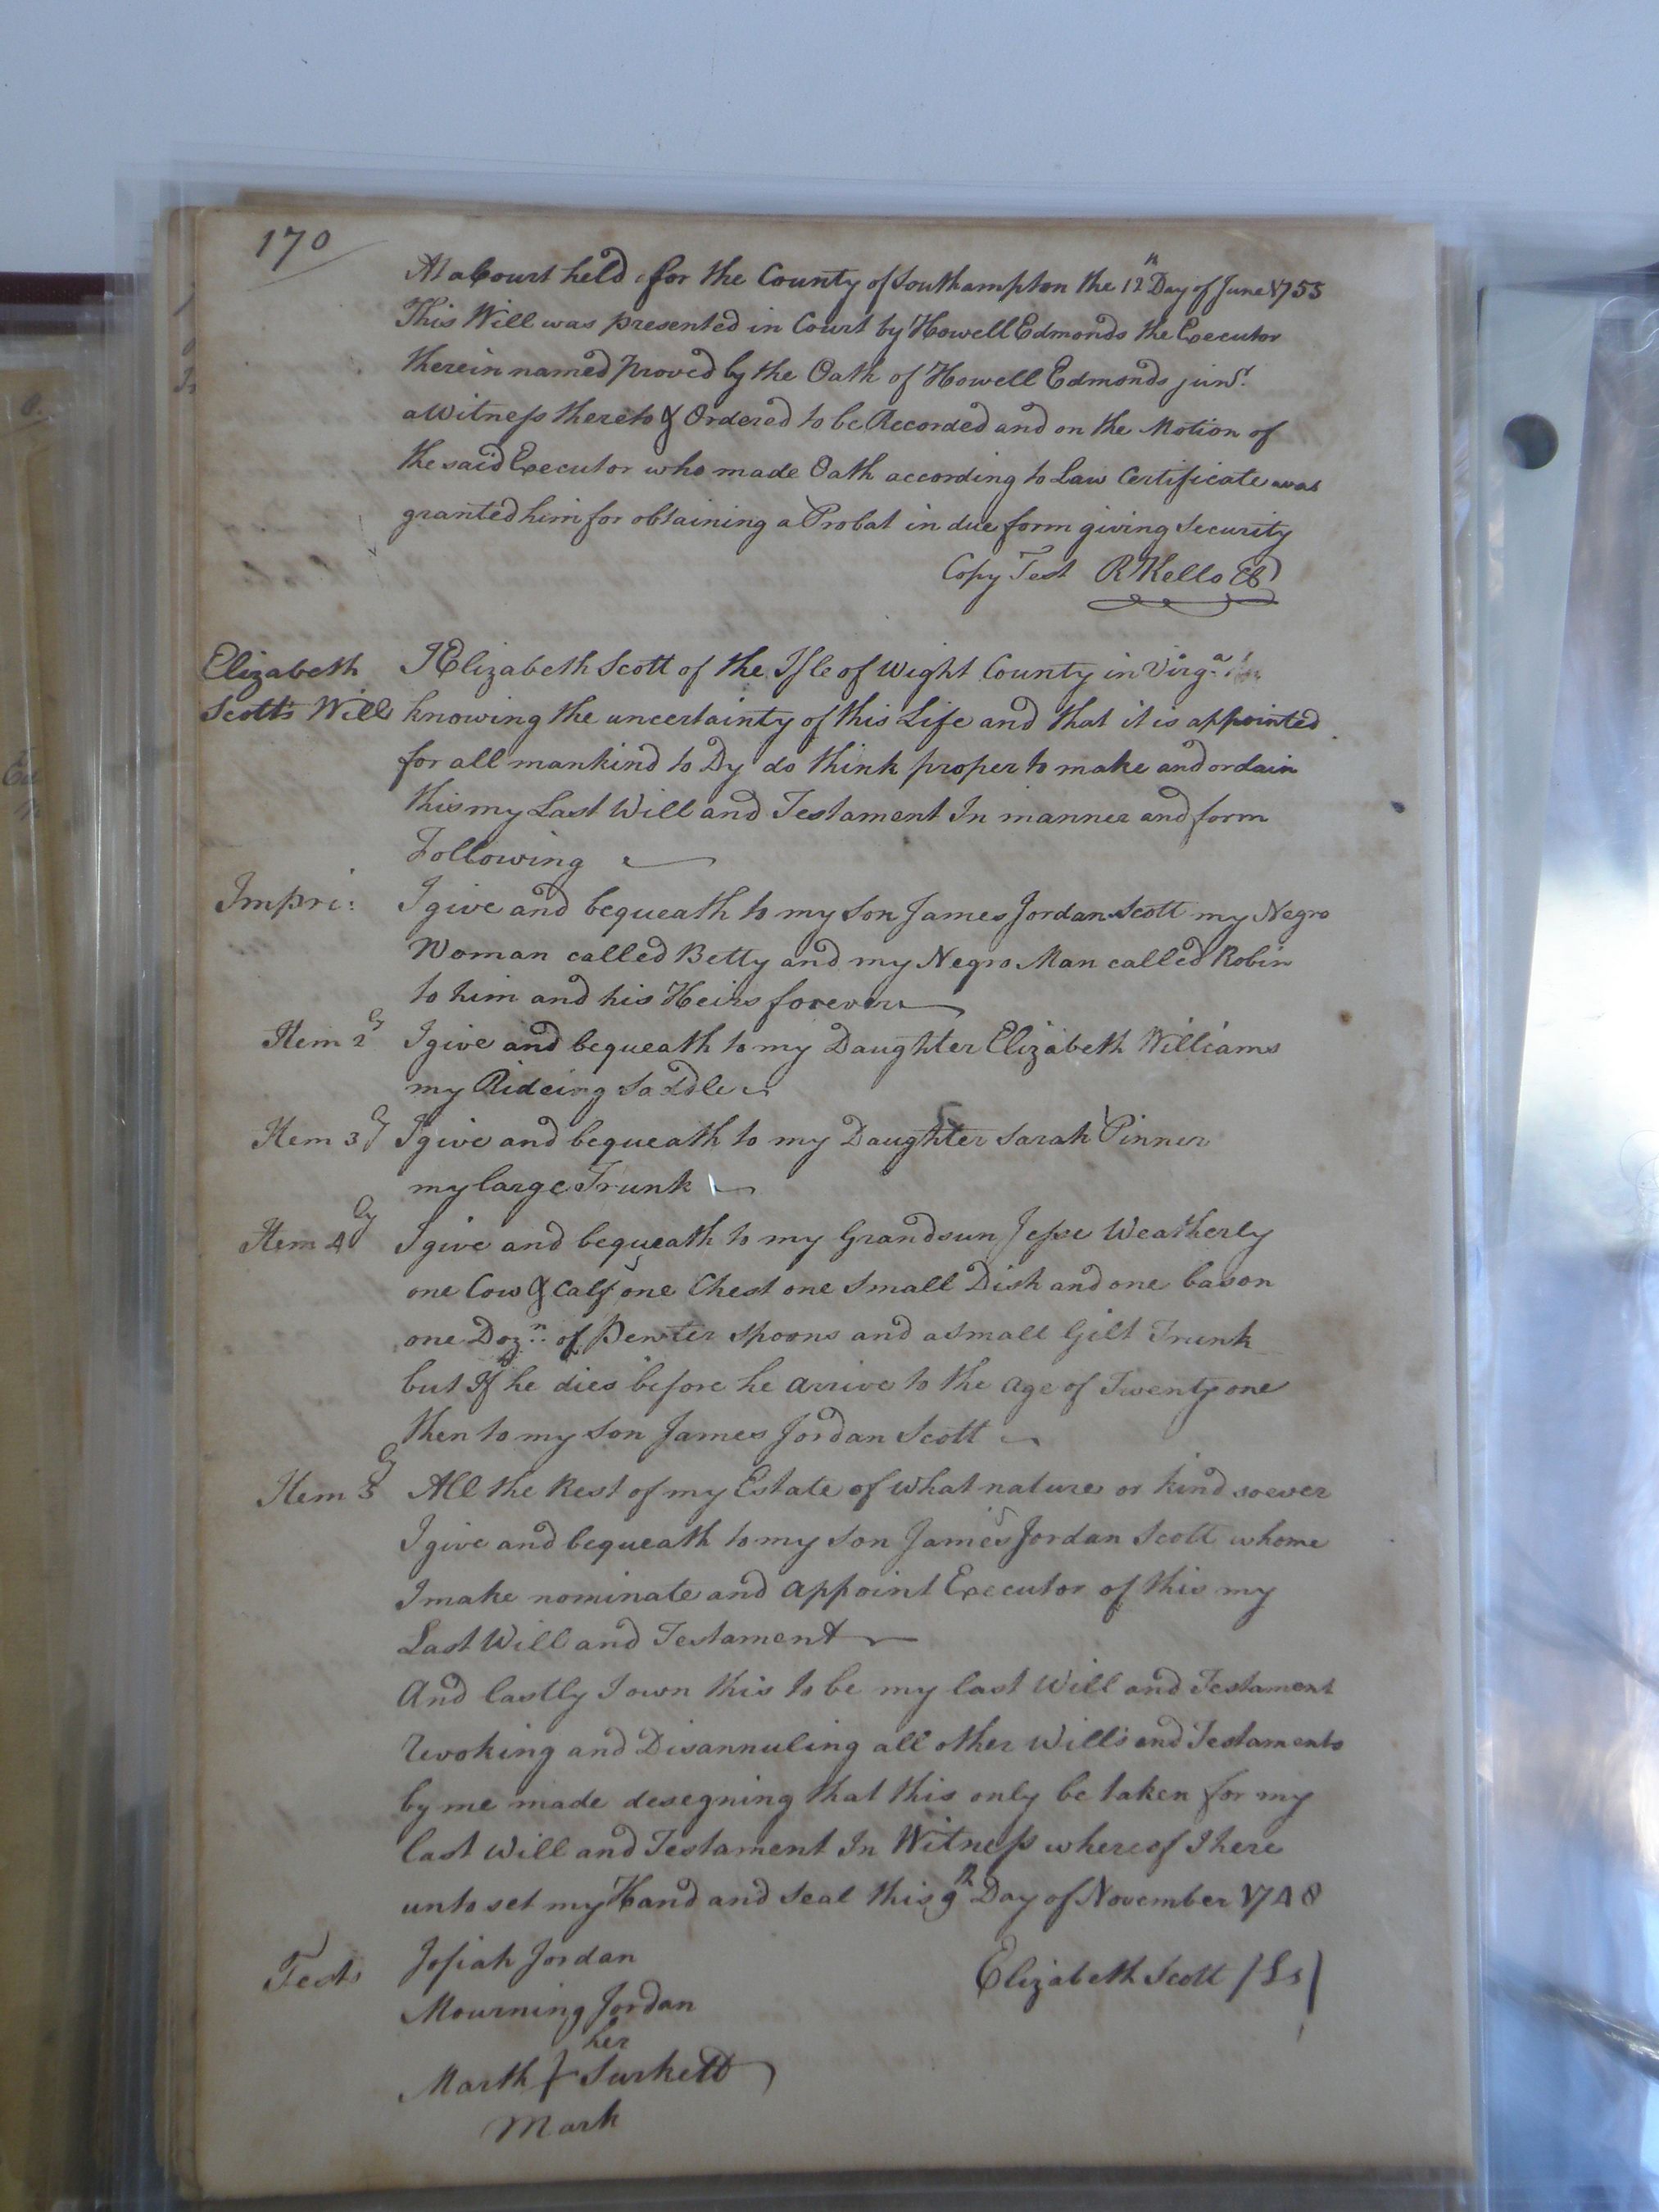 170
At a Court held for the County of Southampton the 12th Day of June 1755
This Will was presented in Court by Howell Edmonds the Executor
therein named proved by the Oath of Howell Edmonds junr.
a Witness thereto & Ordered to be Recorded and on the Motion of
the said Executor who made Oath according to Law Certificate was
granted him for obtaining a Probat in due form giving Security
Copy Test R Kello
Elizabeth Scotts Will
I Elizabeth Scott of the Isle of Wight County in Virga.
knowing the uncertainty of this Life and that it is appointed
for all mankind to Dy do think proper to make and ordain
this my Last Will and Testament In manner and form
Following
Impri: I give and bequeath to my Son James Jordan Scott my Negro
Woman called Betty and my Negro Man called Robin
to him and his Heirs forever
Item 2ly I give and bequeath to my Daughter Elizabeth Williams
my Rideing Saddle
Item 3ly I give and bequeath to my Daughter Sarah Pinner
my large Trunk
Item 4ly I give and bequeath to my Grandsun Jesse Weatherly
one Cow & Calf one Chest one Small Dish and one bason
one Dozn. of Pewter Spoons and a Small Gilt Trunk
but If he dies before he arrive to the age of Twenty one
then to my Son James Jordan Scott
Item 5ly All the Rest of my Estate of what nature or kind soever
I give and bequeath to my Son James Jordan Scott whome
I make nominate and appoint Executor of this my
Last Will and Testament
And lastly I own this to be my last Will and Testament
revoking and Disannuling all other Wills and Testaments
by me made desegning that this only be taken for my
last Will and Testament In Witness whereof I here
unto set my Hand and Seal this 9th Day of November 1748
Tests Josiah Jordan
Elizabeth Scott (Ls)
Mourning Jordan
her
Marth Surkett
Mark